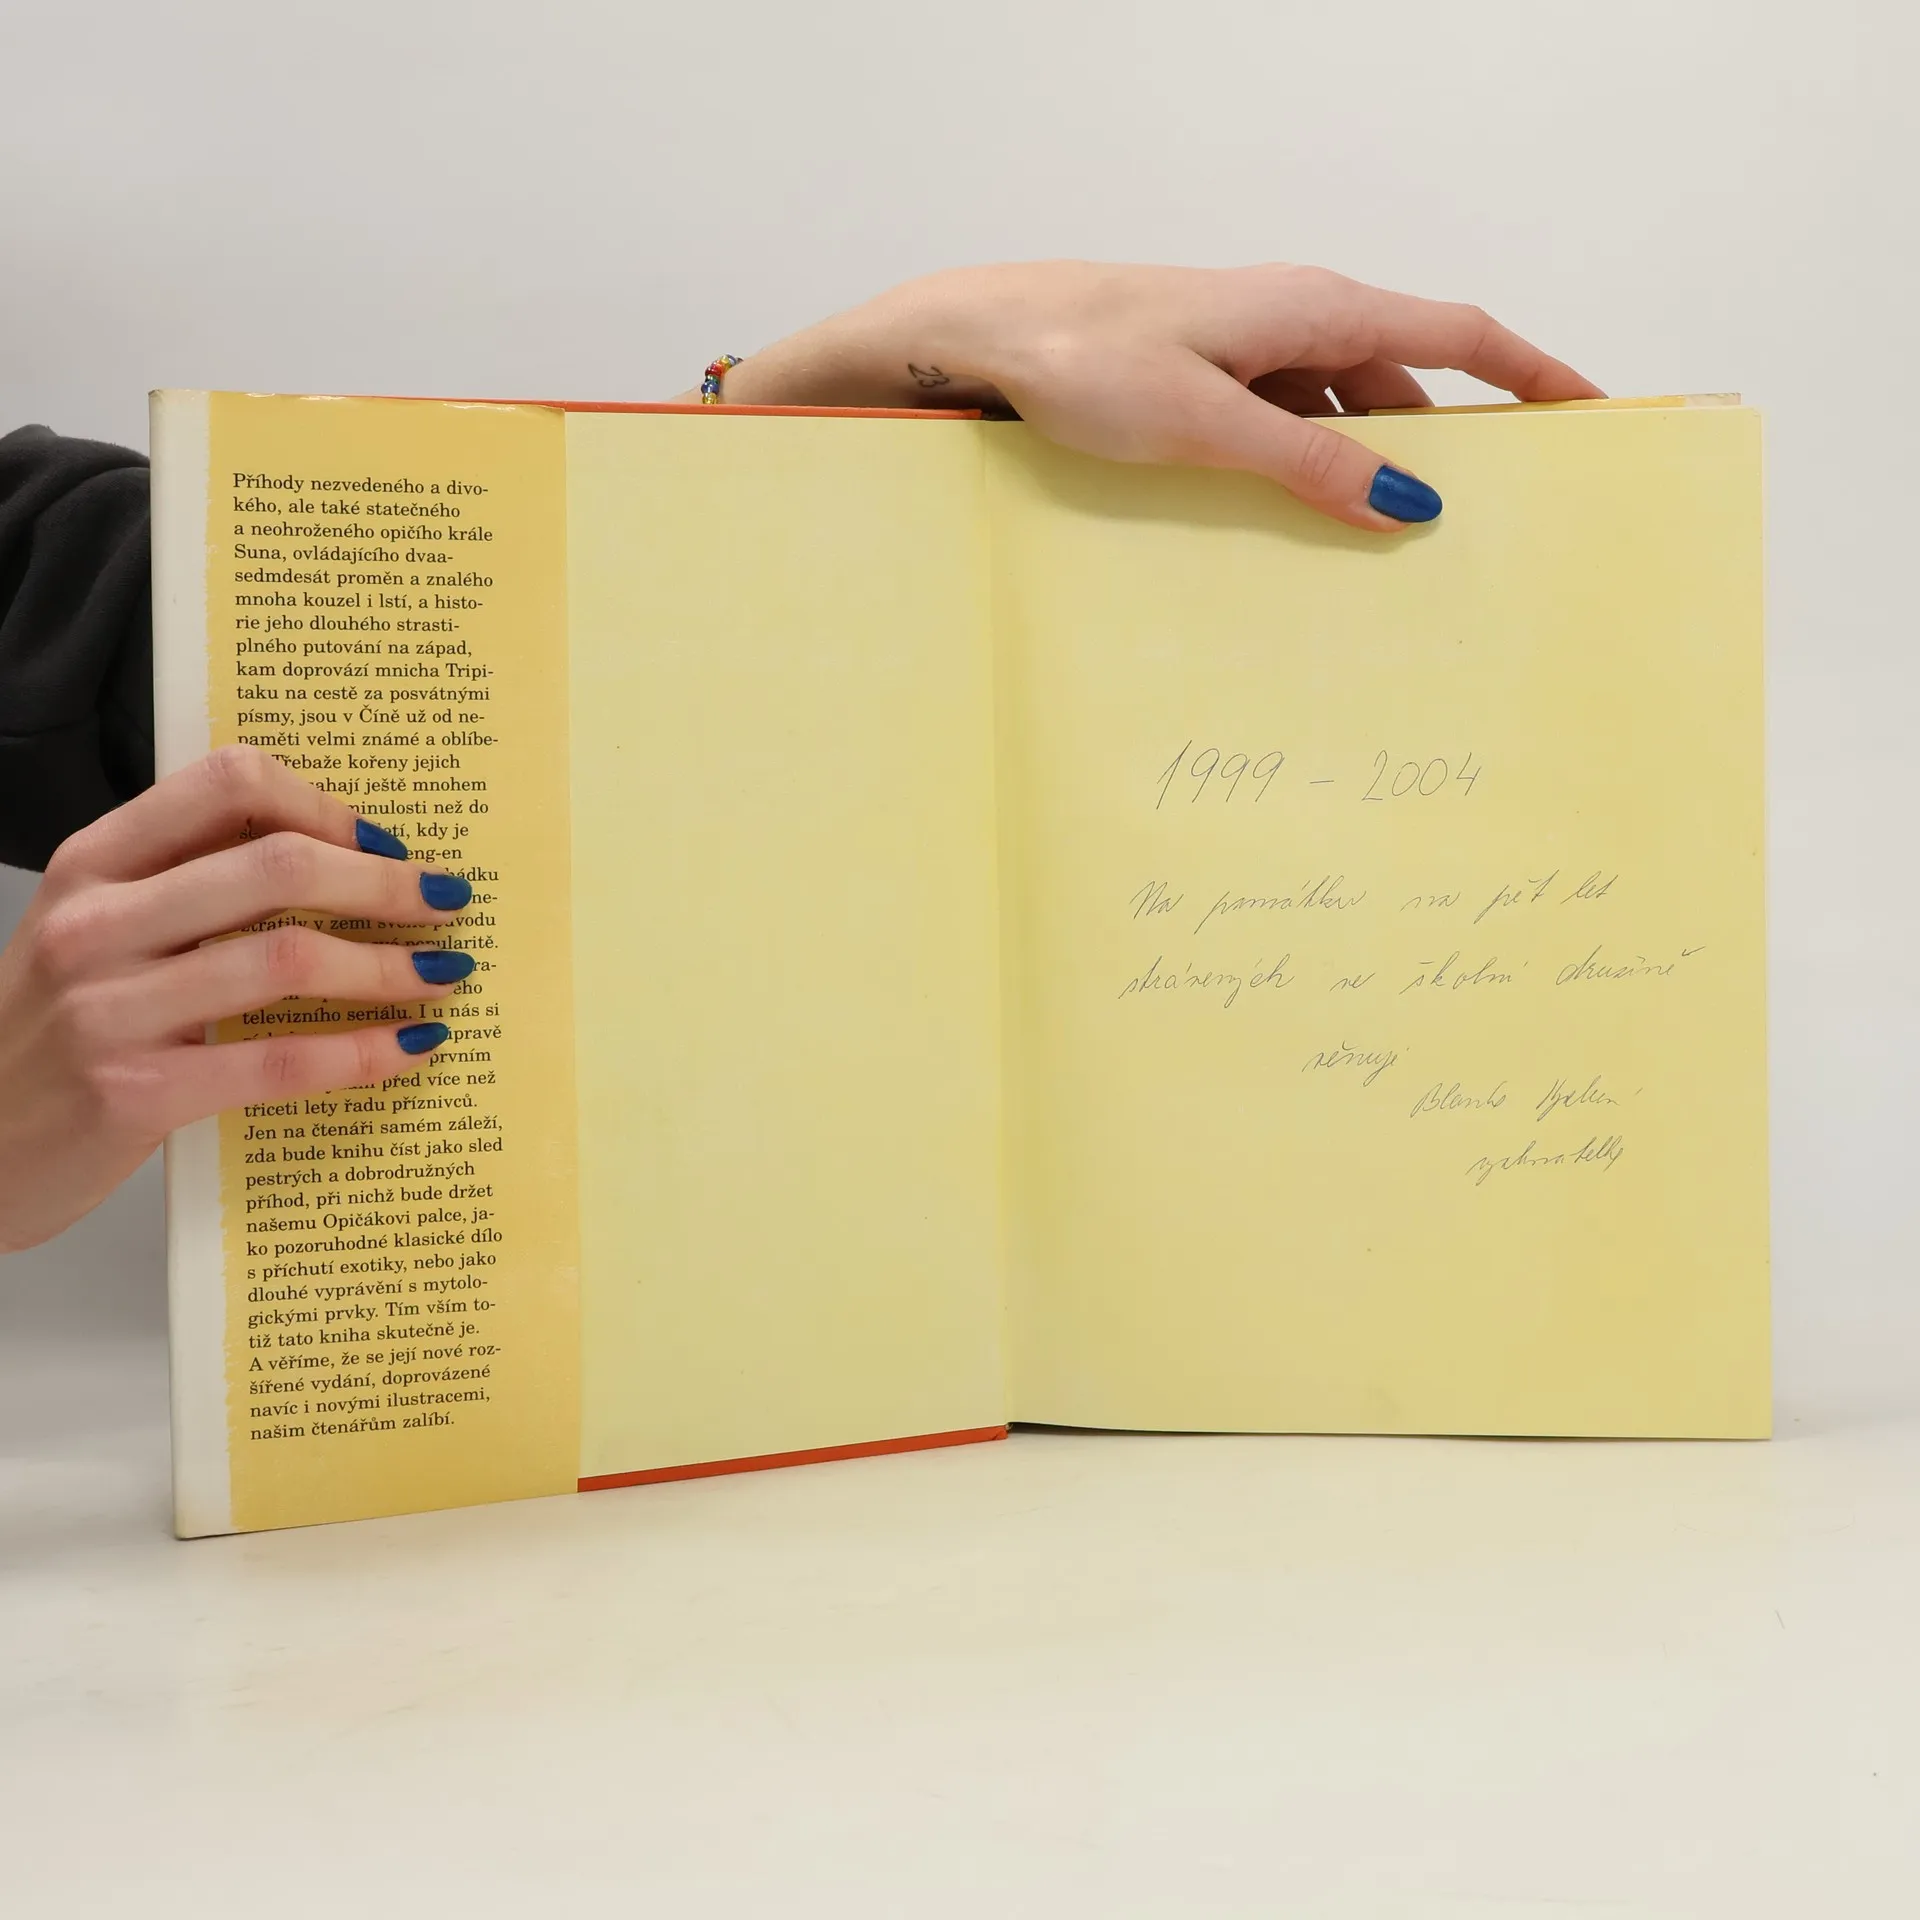 Příhody nezvedeného a divo-
kého, ale také statečného
a neohroženého opičího krále
Suna, ovládajícího dvaa-
sedmdesát proměn a znalého
mnoha kouzel i lstí, a histo-
rie jeho dlouhého strasti-
plného putování na západ,
kam doprovází mnicha Tripi-
taku na cestě za posvátnými
písmy, jsou v Číně už od ne-
paměti velmi známé a oblíbe-
Třebaže kořeny jejich
sahají ještě mnohem
minulosti než do
kdy je
eng-en
ne-
ztratily v zemi svého původu
popularitě.
ra-
televizního seriálu. I u nás si
prvním
před více než
třiceti lety řadu příznivců.
Jen na čtenáři samém záleží,
zda bude knihu číst jako sled
pestrých a dobrodružných
příhod, při nichž bude držet
našemu Opičákovi palce, ja-
ko pozoruhodné klasické dílo
s příchutí exotiky, nebo jako
dlouhé vyprávění s mytolo-
gickými prvky. Tím vším to-
tiž tato kniha skutečně je.
A věříme, že se její nové roz-
šířené vydání, doprovázené
navíc i novými ilustracemi,
našim čtenářům zalíbí.
23
1999 – 2004
Na památku na pět let
strávených ve školní družině
věnuje
Blanka